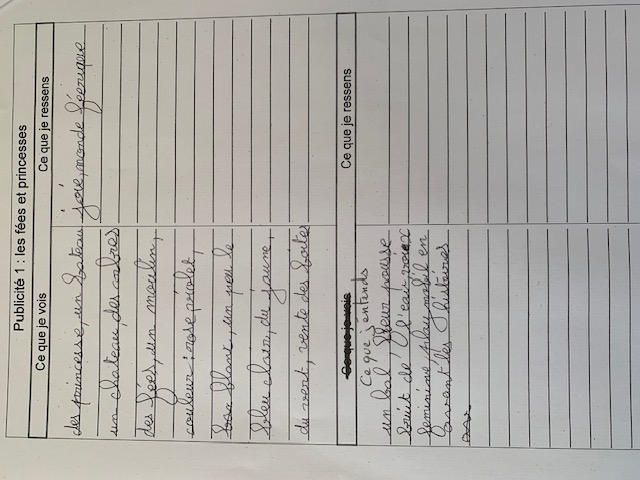 Publicité 1 : les fées et princesses
Ce que je vois
Ce que je ressens
des princesse, un bateau
un chateau, des arbres
des fées, un moulin,
couleur : rose, violet,
blanc, un peu le
bleu clair, du jaune,
du vert, vente des boites
joie, monde féerique
Ce que je vois
Ce que j'entends
Ce que je ressens
un bal, fleur pousse
bruit de l'eau, voix
feminine, playmobil en
avant les histoires